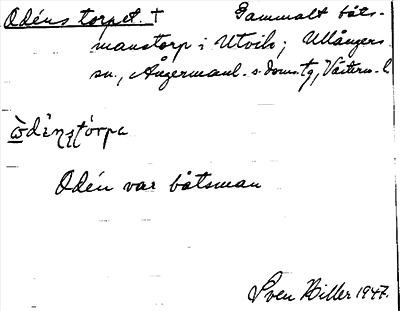 Odéns torpet. † Gammalt båts-
manstorp i Utvik; Ullångers
sn., Ångermanl. s. doms. tg, Västern. l
òdènstórpa
Odén var båtsman
Sven Hiller 1947.